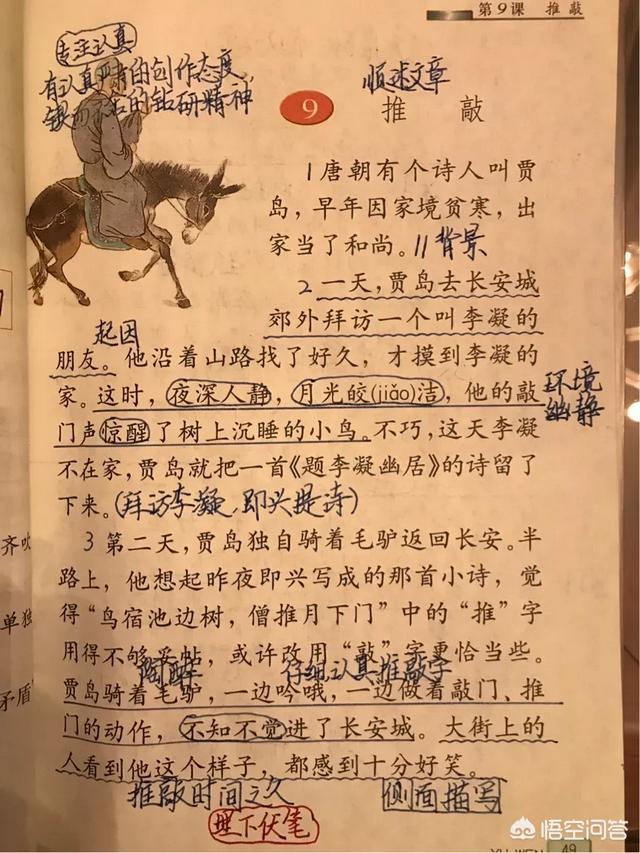 第9课 推敲
专注认真
有认真严肃的创作态度,
锲而不舍的钻研精神
顺述文章
9 推敲
1唐朝有个诗人叫贾
岛,早年因家境贫寒,出
家当了和尚。//背景
2一天,贾岛去长安城
郊外拜访一个叫李凝的
起因
朋友。他沿着山路找了好久,才摸到李凝的
家。这时,夜深人静,月光皎(jiǎo)洁,他的敲
环境
幽静
门声惊醒了树上沉睡的小鸟。不巧,这天李凝
不在家,贾岛就把一首《题李凝幽居》的诗留了
下来。(拜访李凝,即兴提诗)
3第二天,贾岛独自骑着毛驴返回长安。半
路上,他想起昨夜即兴写成的那首小诗,觉
得“鸟宿池边树,僧推月下门”中的“推”字
用得不够妥帖,或许改用“敲”字更恰当些。
陶醉 仔细认真推敲字
贾岛骑着毛驴,一边吟哦,一边做着敲门、推
门的动作,不知不觉进了长安城。大街上的
人看到他这个样子,都感到十分好笑。
推敲时间之久 侧面描写
埋下伏笔
齐吹
单独
矛盾
悟空问答
YU WEN 49